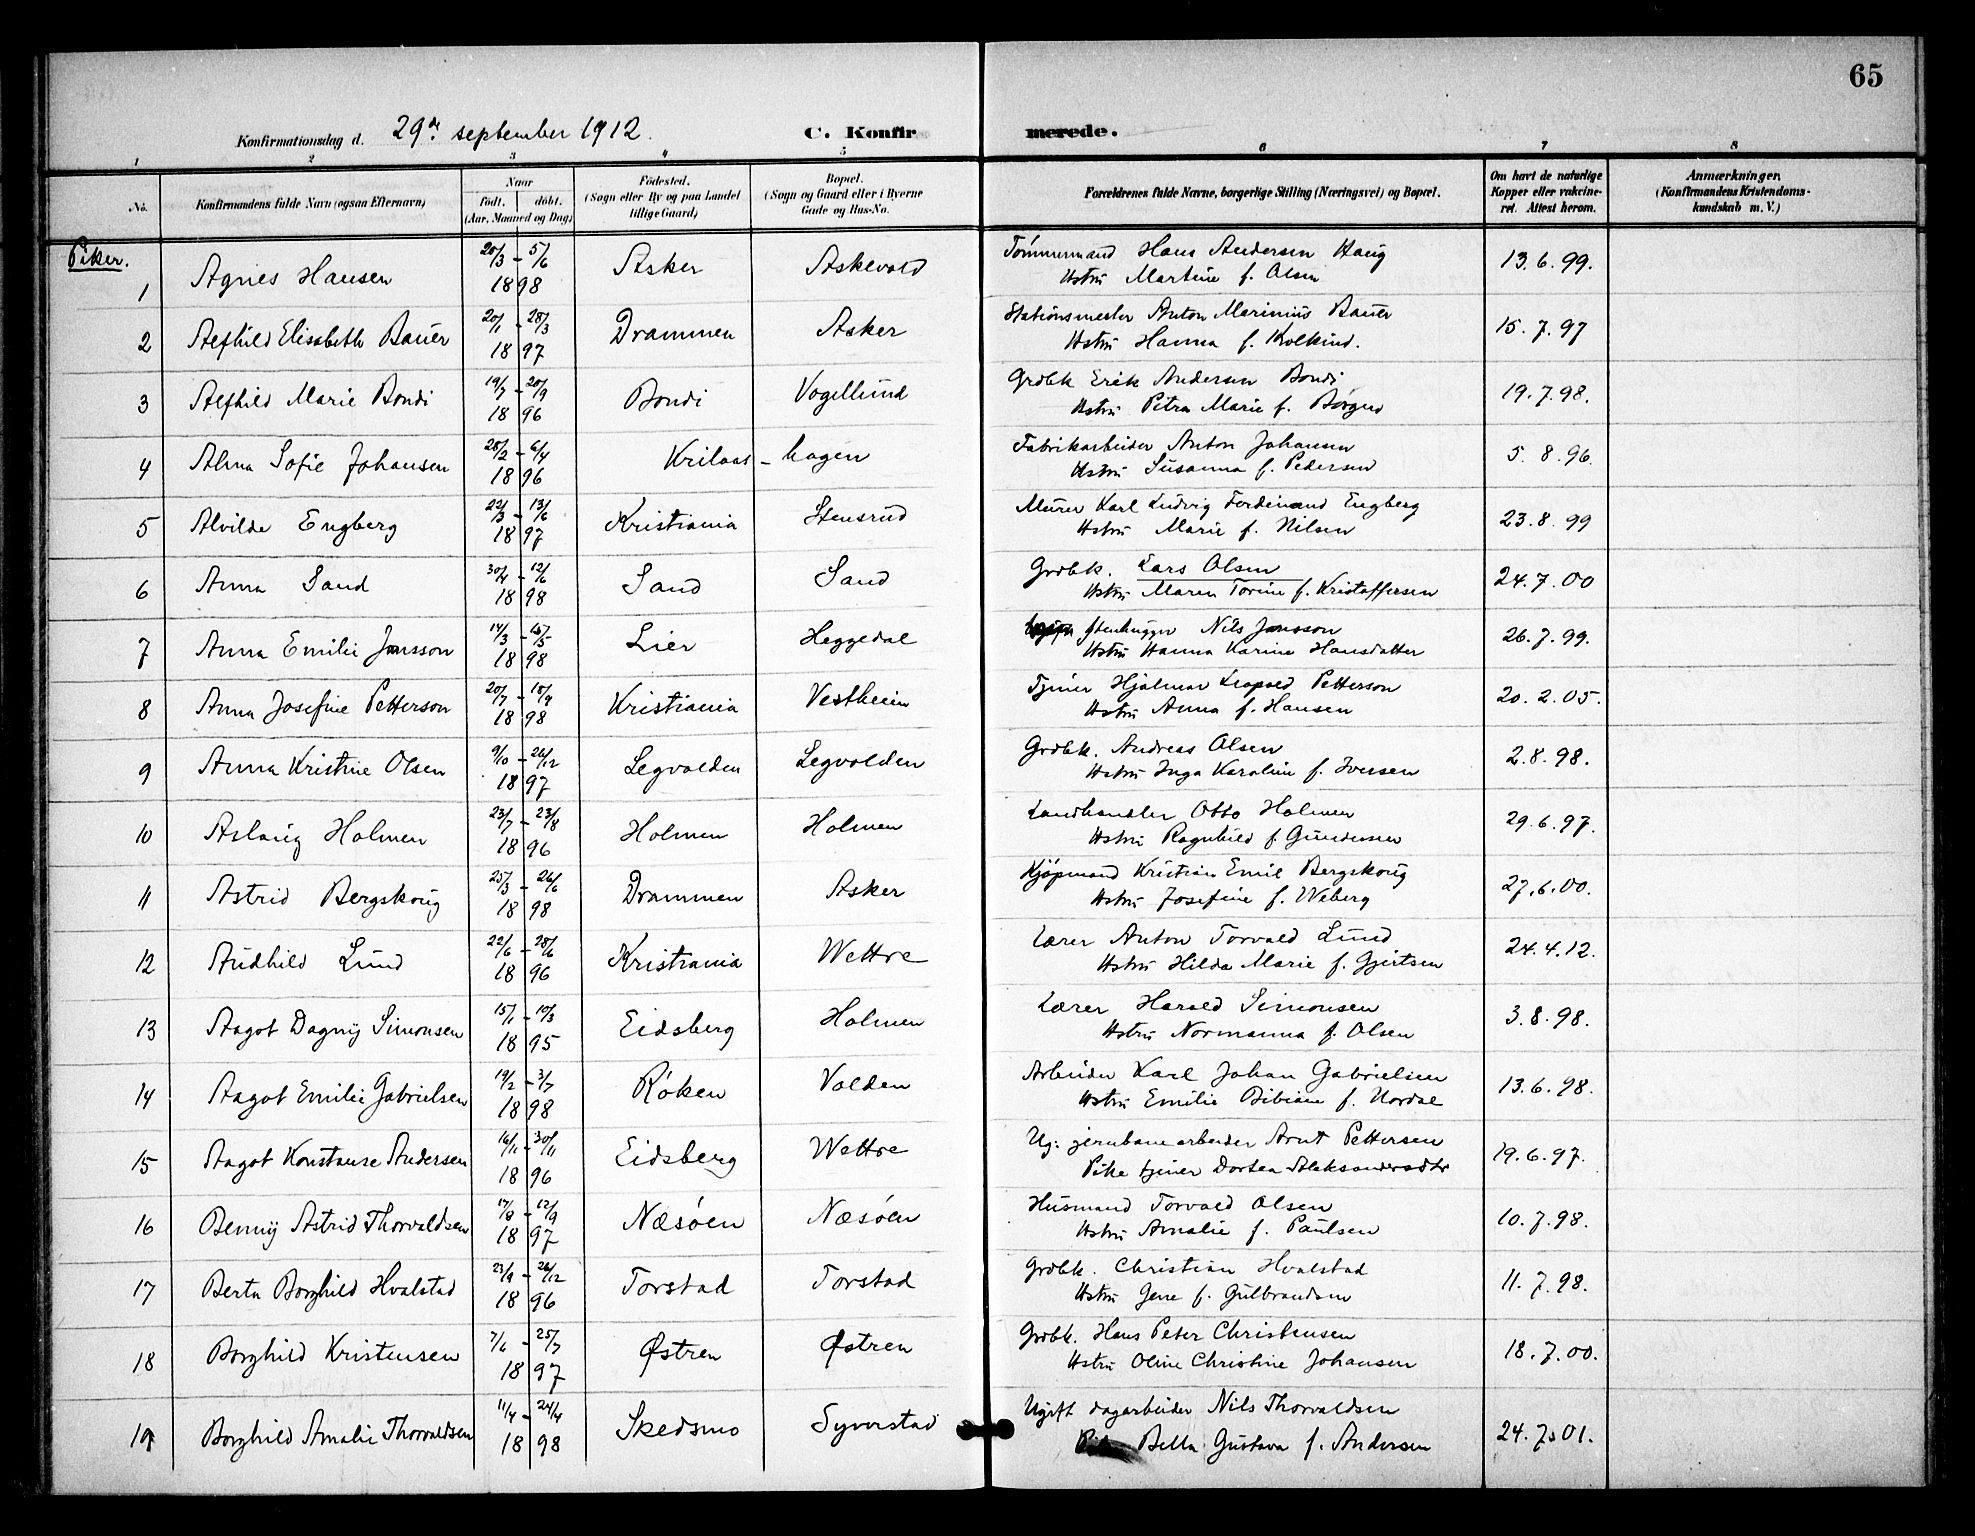 65
Konfirmationsdag d. 29de september 1912. C. Konfirmerede.
1 2 3 4 5 6 7 8
No. Konfirmandens fulde Navn (ogsaa Efternavn) Naar født. døbt. (Aar, Maaned og Dag) Fødested. (Sogn eller By og paa Landet tillige Gaard) Bopæl. (Sogn og Gaard eller i Byerne Gade og Hus-No. Forældrenes fulde Navne, borgerlige Stilling (Næringsvei) og Bopæl. Om havt de naturlige Kopper eller vaksineret. Attest herom. Anmærkninger. (Konfirmandens Kristendomskundskab m. V.)
Piker.
1 Agnes Hansen 20/3 - 5/6 1898 Asker Askevold Tømmermand Hans Andersen Haug 13.6.99.
Hstru Martine f. Olsen
2 Alfhild Elisabeth Bauer 20/1 - 28/3 1897 Drammen Asker Stationsmester Anton Marinius Bauer 15.7.97
Hstru Hanna f. Kolkind.
3 Alfhild Marie Bondi 19/7 - 20/9 1896 Bondi Vogellund Grdbk Erik Andersen Bondi 19.7.98.
Hstru Petra Marie f. Børgen
4 Alma Sofie Johansen 28/2 - 6/4 1896 Krilaas - hagen Fabrikarbeider Anton Johansen 5.8.96.
Hstru Susanna f. Pedersen
5 Alvilde Engberg 22/3 - 13/6 1897 Kristiania Stensrud Murer Karl Ludvig Ferdinand Engberg 23.8.99
Hstru Marie f. Nilsen
6 Anna Sand 30/4 - 12/6 1898 Sand Sand Grdbk. Lars Olsen 24.7.00
Hstru Maren Torine f. Kristoffersen
7 Anna Emilie Jonsson 14/3 - 15/5 1898 Lier Heggedal Stenhugger Nils Jonsson 26.7.99.
Hstru Hanna Karine Hansdatter
8 Anna Josefine Petterson 20/7 - 18/9 1898 Kristiania Vestheim Tjener Hjalmar Leopold Petterson 20.2.05.
Hstru Anna f. Hansen
9 Anna Kristine Olsen 9/10 - 26/12 1897 Legvolden Legvolden Grdbk. Andreas Olsen 2.8.98.
Hstru Inga Karoline f. Iversen
10 Aslaug Holmen 23/7 - 23/8 1896 Holmen Holmen Landhandler Otto Holmen 29.6.97.
Hstru Ragnhild f. Gundersen
11 Astrid Bergskoug 25/3 - 26/6 1898 Drammen Asker Kjøpmand Kristian Emil Bergskoug 27.6.00.
Hstru Josefine f. Weberg
12 Audhild Lund 22/6 - 28/6 1896 Kristiania Wettre Lærer Anton Torvald Lund 24.4.12.
Hstru Hilda Marie f. Gjertsen
13 Aagot Dagny Simonsen 15/1 - 10/3 1895 Eidsberg Holmen Lærer Harald Simonsen 3.8.98.
Hstru Normanna f. Olsen
14 Aagot Emilie Gabrielsen 19/2 - 3/7 1898 Røken Volden Arbeider Karl Johan Gabrielsen 13.6.98.
Hstru Emilie Bibiane f. Nordal
15 Aagot Konstanse Andersen 16/11 - 30/11 1896 Eidsberg Wettre Ug: jernbanearbeider Arnt Pettersen 19.6.97.
Pike tjener Dortea Aleksandersdtr
16 Benny Astrid Thorvaldsen 17/8 - 12/9 1897 Næsøen Næsøen Husmand Torvald Olsen 10.7.98.
Hstru Amalie f. Paulsen
17 Berta Borghild Hvalstad 23/9 - 26/12 1896 Torstad Torstad Grdbk. Christian Hvalstad 11.7.98.
Hstru Gene f. Gulbrandsen
18 Borghild Kristensen 7/6 - 25/7 1897 Østren Østren Grdbk. Hans Peter Christensen 18.7.00.
Hstru Oline Christine Johansen
19 Borghild Amalie Thorvaldsen 11/4 - 24/4 1898 Skedsmo Syverstad Ugift dagarbeider Nils Thorvaldsen 24.7.01.
Bella Gustava f. Andersen